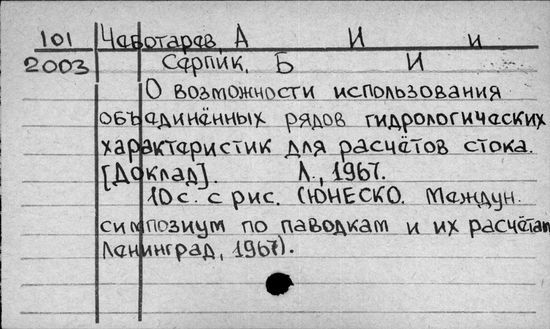 101 Чеботарев, А И и
2003 Серпик, Б И
О возможности использования
объединённых рядов гидрологических
характеристик для расчётов стока.
[Доклад]. Л., 1967.
10 с. с рис. (ЮНЕСКО. Междун.
симпозиум по паводкам и их расчётам
Ленинград, 1967).